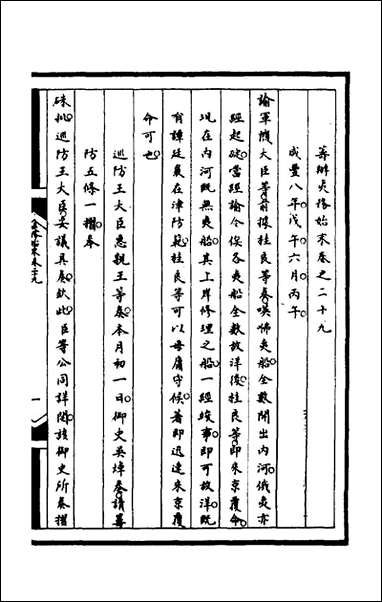 籌辦夷務始末卷之二十九
咸豐八年戊午六月丙午
諭軍機大臣等前據桂良等奏嘆佛夷船全數開出內河俄夷亦
經起碇當經諭令俟各夷船全數放洋後桂良等即來京覆命
現在內河既無夷船其上岸修理之船一經竣事即可放洋既
有譚廷襄在津防範桂良等可以毋庸守候著即迅速來京覆
命可也
巡防王大臣惠親王等奏本月初一日御史吳焯奏請畧
防五條一摺奉
硃批巡防王大臣妥議具奏欽此臣等公同詳閱該御史所奏摺
夷務始末卷二十九
一